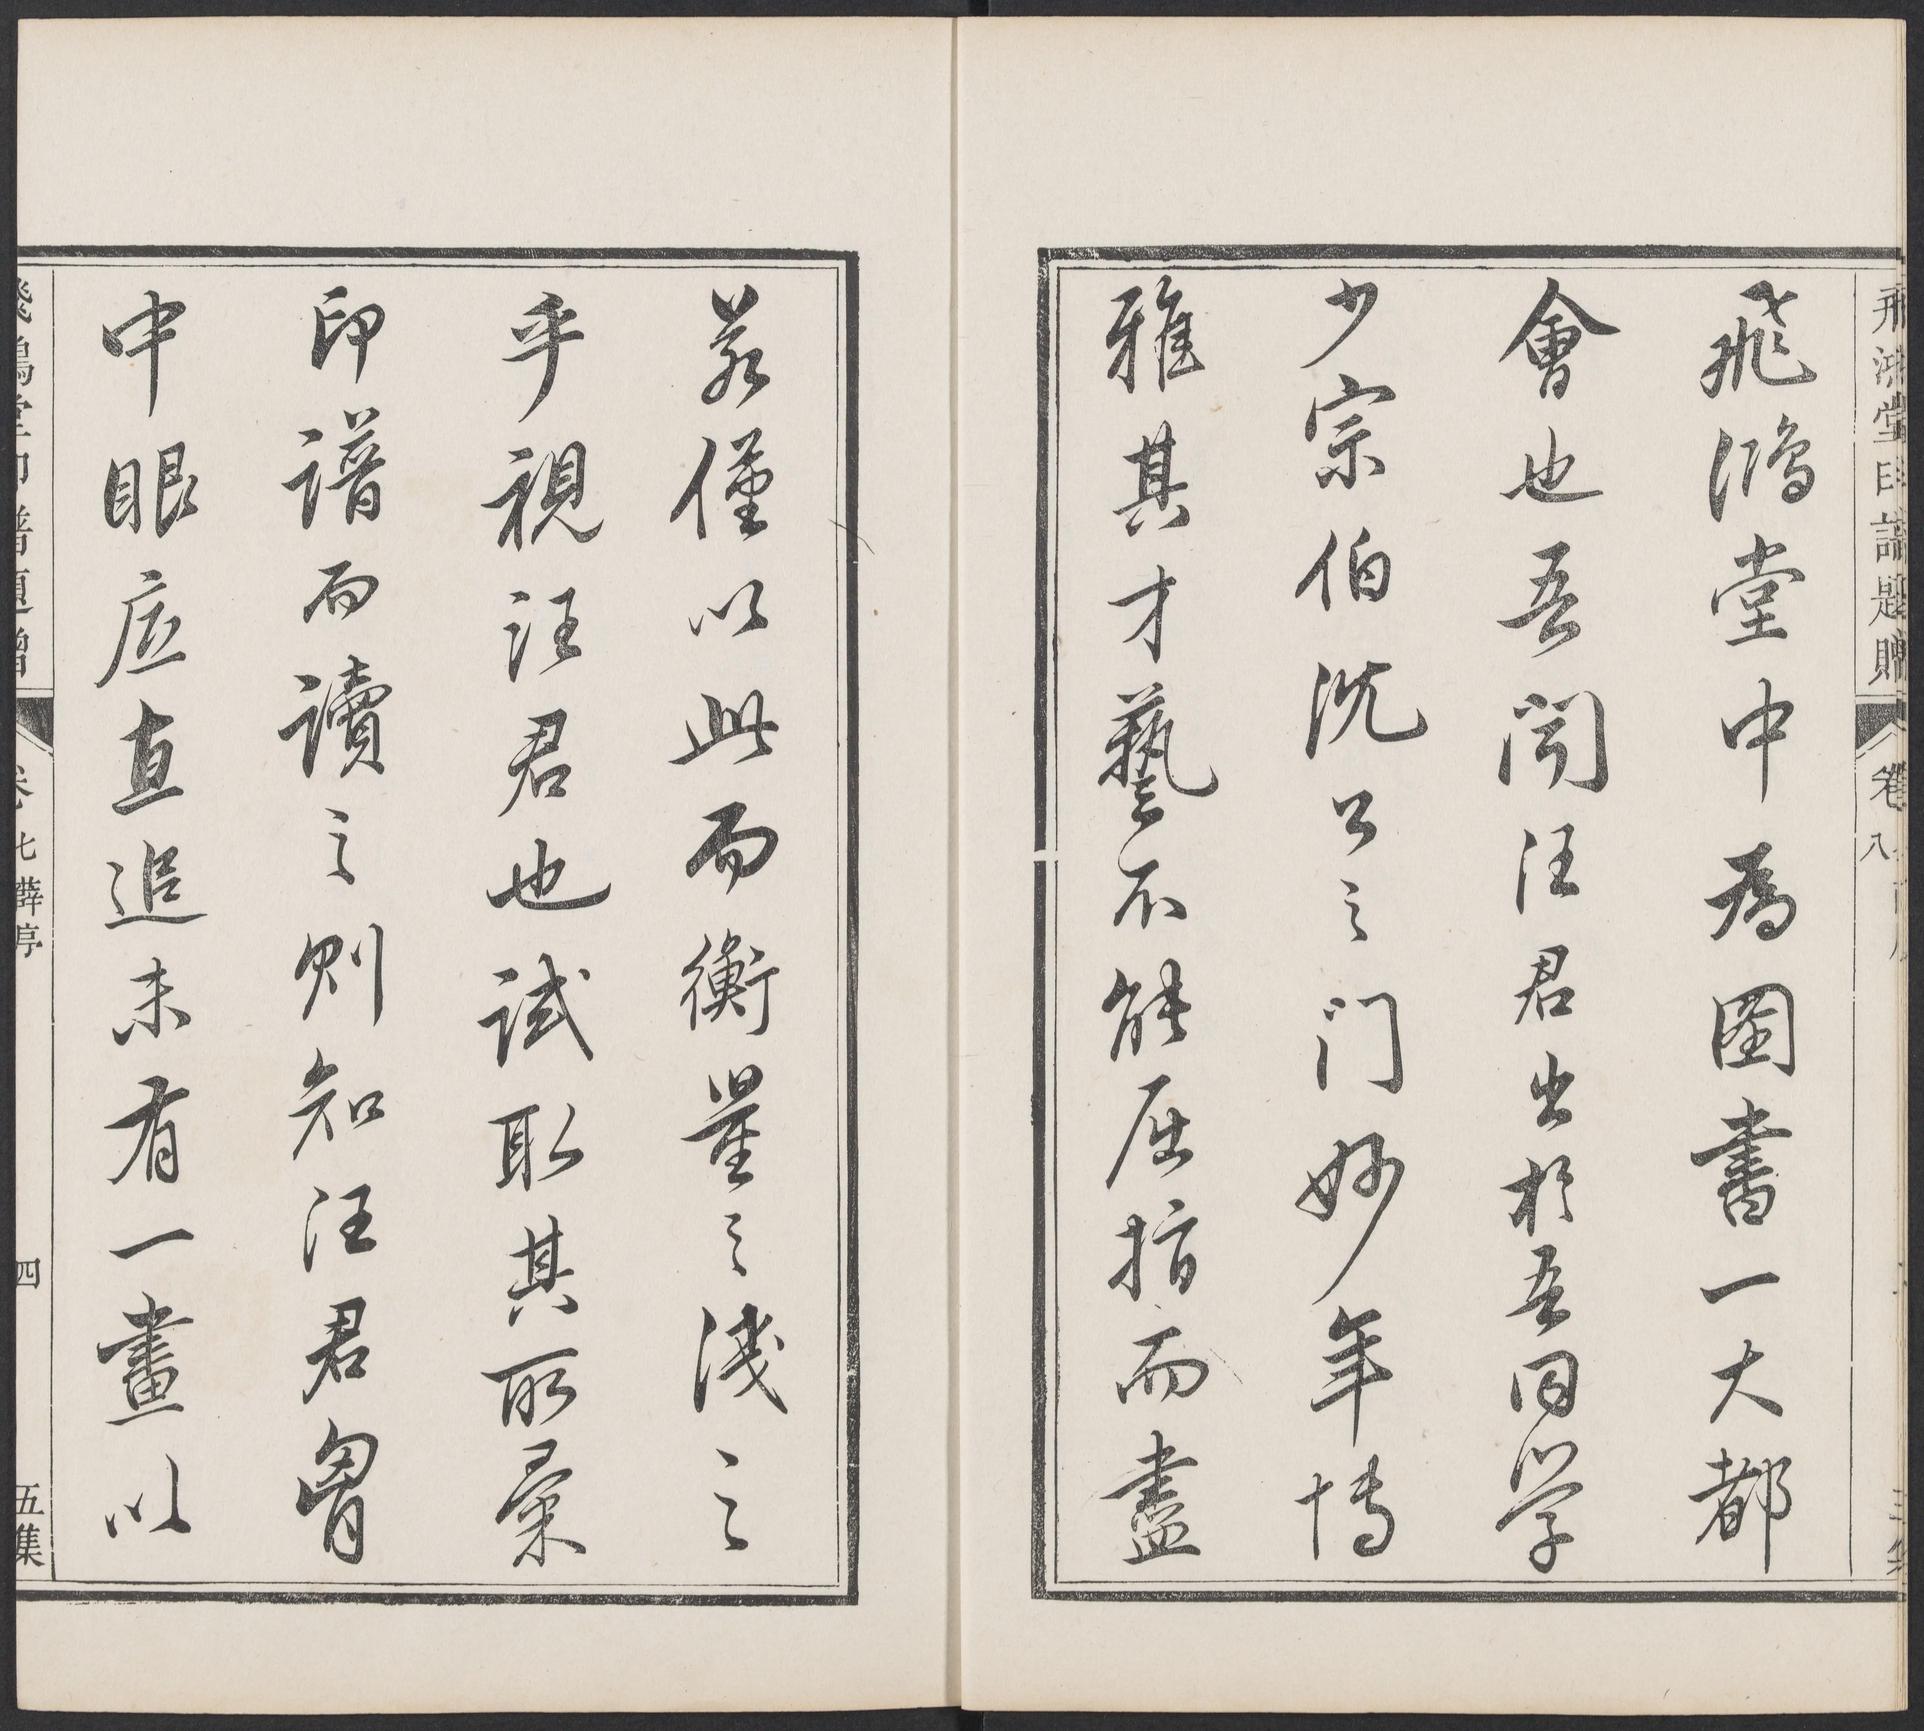 飛鴻堂印譜題贈 卷八
飛鴻堂中為圖書一大都
會也吾聞汪君出於吾同學
少宗伯沈公之門妙年博
雅其才藝不能屈指而盡
若僅以此而衡量之淺之
乎視汪君也試取其所彙
印譜而讀之則知汪君胷
中眼底直追未有一畫以
飛鴻堂印譜題贈 卷七 薛亭 四 五集